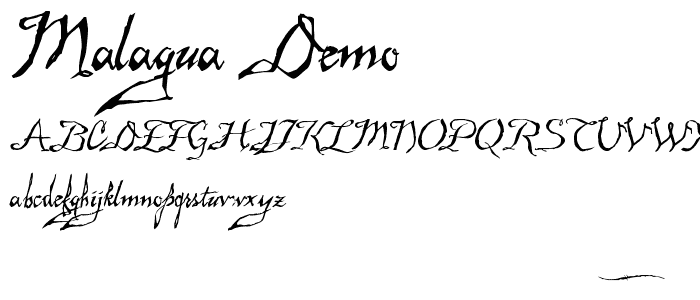 Malagua Demo
ABCDEFGHIJKLMNOPQRSTUVWX
abcdefghijklmnopqrstuvwxyz